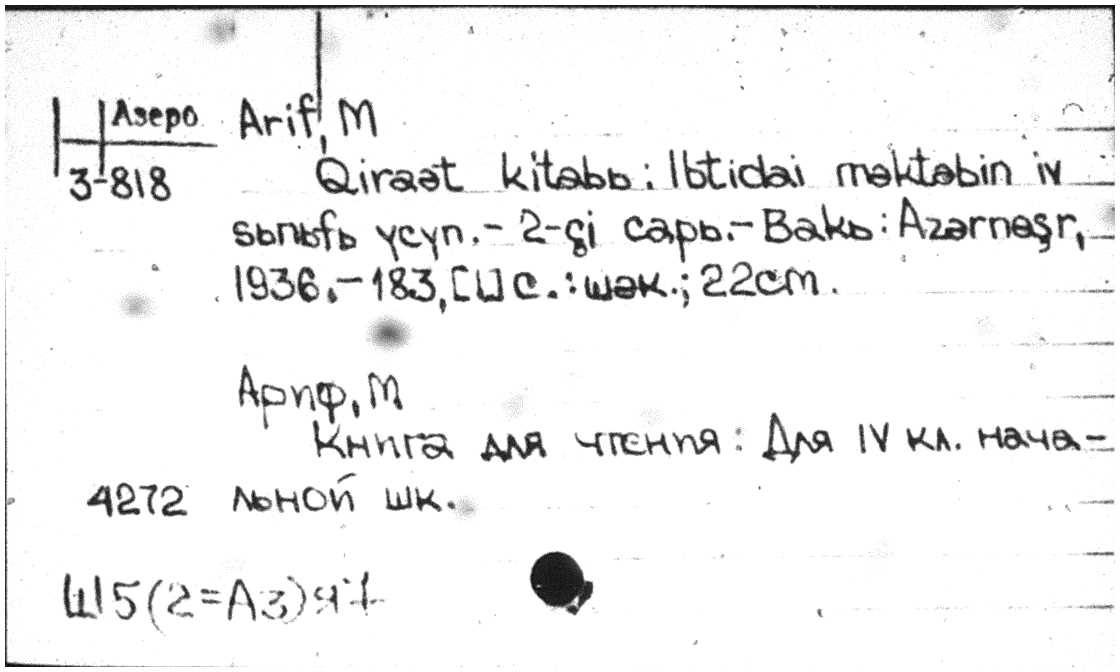 Азеро Arif, M
3-818 Qiraət kitabь: Ibtidai məktəbin iv
sьnьfь ycyn.- 2-çi capь.- Bakь: Azərnəşr,
1936.- 183, [1] c.: шək.; 22cm.
Ариф, М
Книга для чтения: Для IV кл. нача-
4272 льной шк.
Ш5(2=Аз)я7